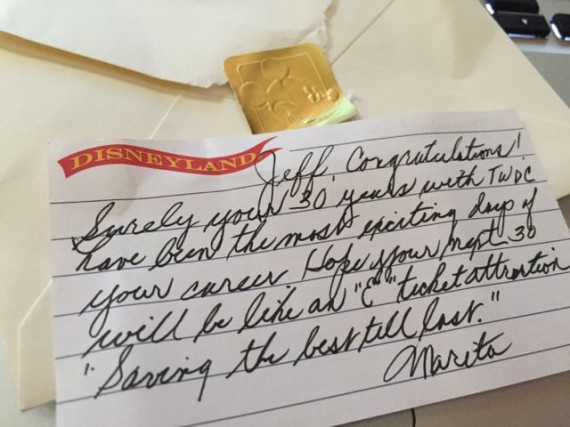 DISNEYLAND
Jeff, Congratulations!
Surely your 30 years with TWDC
have been the most exciting days of
your career. Hope your next 30
will be like an "E" ticket attraction
"Saving the best till last."
Marita